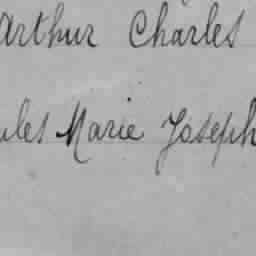 Arthur Charles
ules Marie Joseph